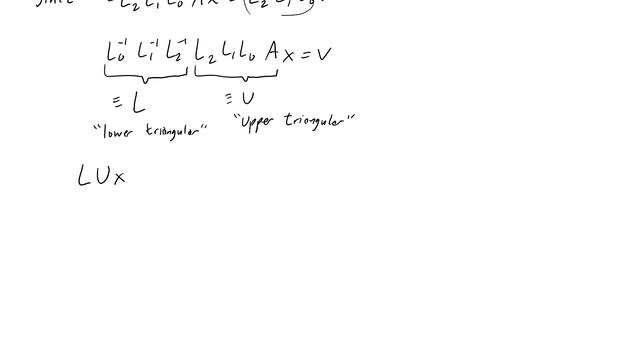 L₂ L₁ L₀ A x =
L₀⁻¹ L₁⁻¹ L₂⁻¹ L₂ L₁ L₀ A x = v
≡ L ≡ U
"lower triangular" "Upper triangular"
L U x